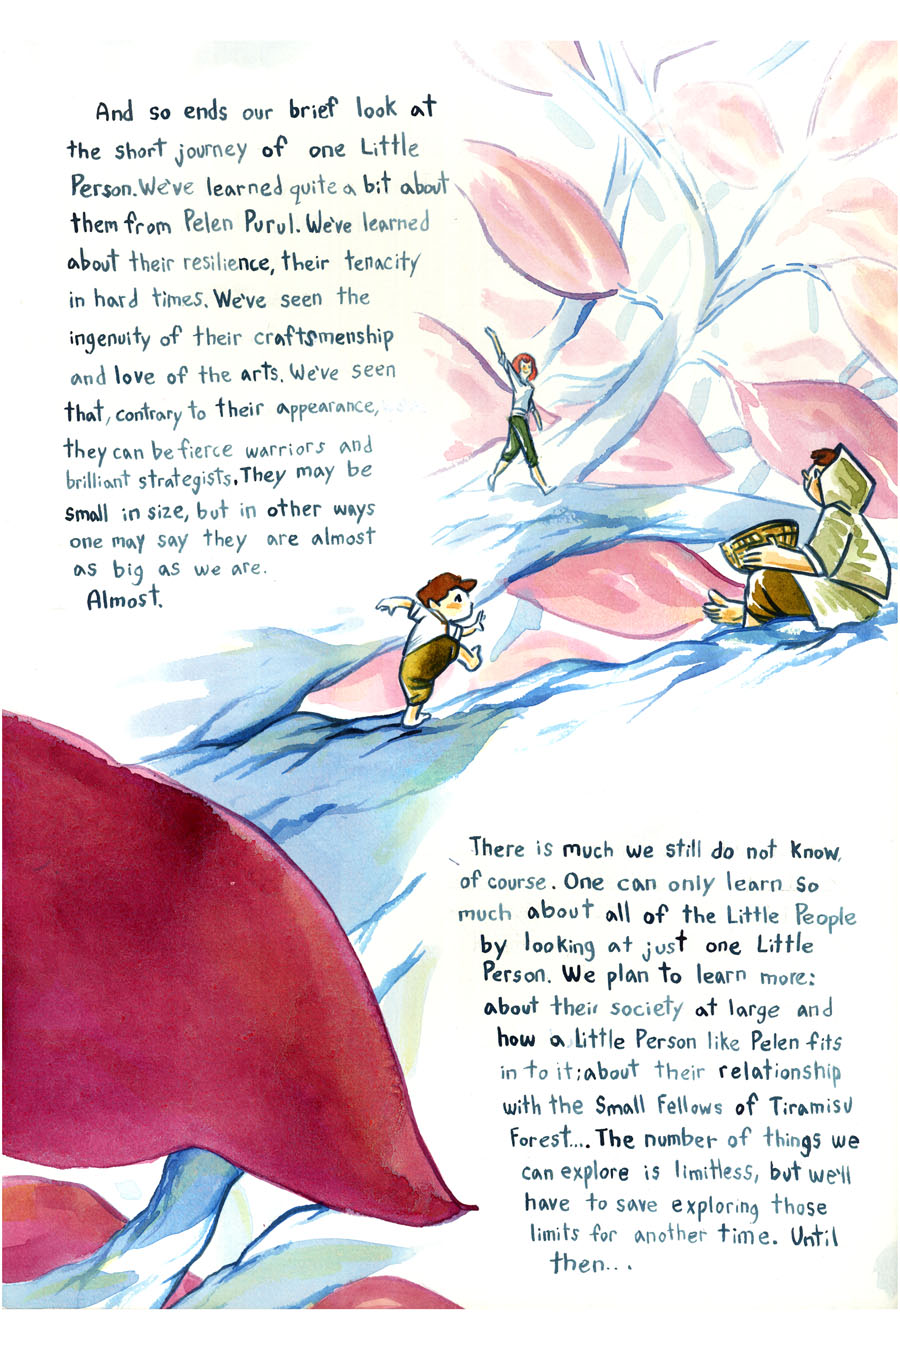 And so ends our brief look at
the short journey of one Little
Person. We've learned quite a bit about
them from Pelen Purul. We've learned
about their resilience, their tenacity
in hard times. We've seen the
ingenuity of their craftsmenship
and love of the arts. We've seen
that, contrary to their appearance,
they can be fierce warriors and
brilliant strategists. They may be
small in size, but in other ways
one may say they are almost
as big as we are.
Almost.
There is much we still do not know,
of course. One can only learn so
much about all of the Little People
by looking at just one Little
Person. We plan to learn more:
about their society at large and
how a Little Person like Pelen fits
in to it; about their relationship
with the Small Fellows of Tiramisu
Forest.... The number of things we
can explore is limitless, but we'll
have to save exploring those
limits for another time. Until
then...